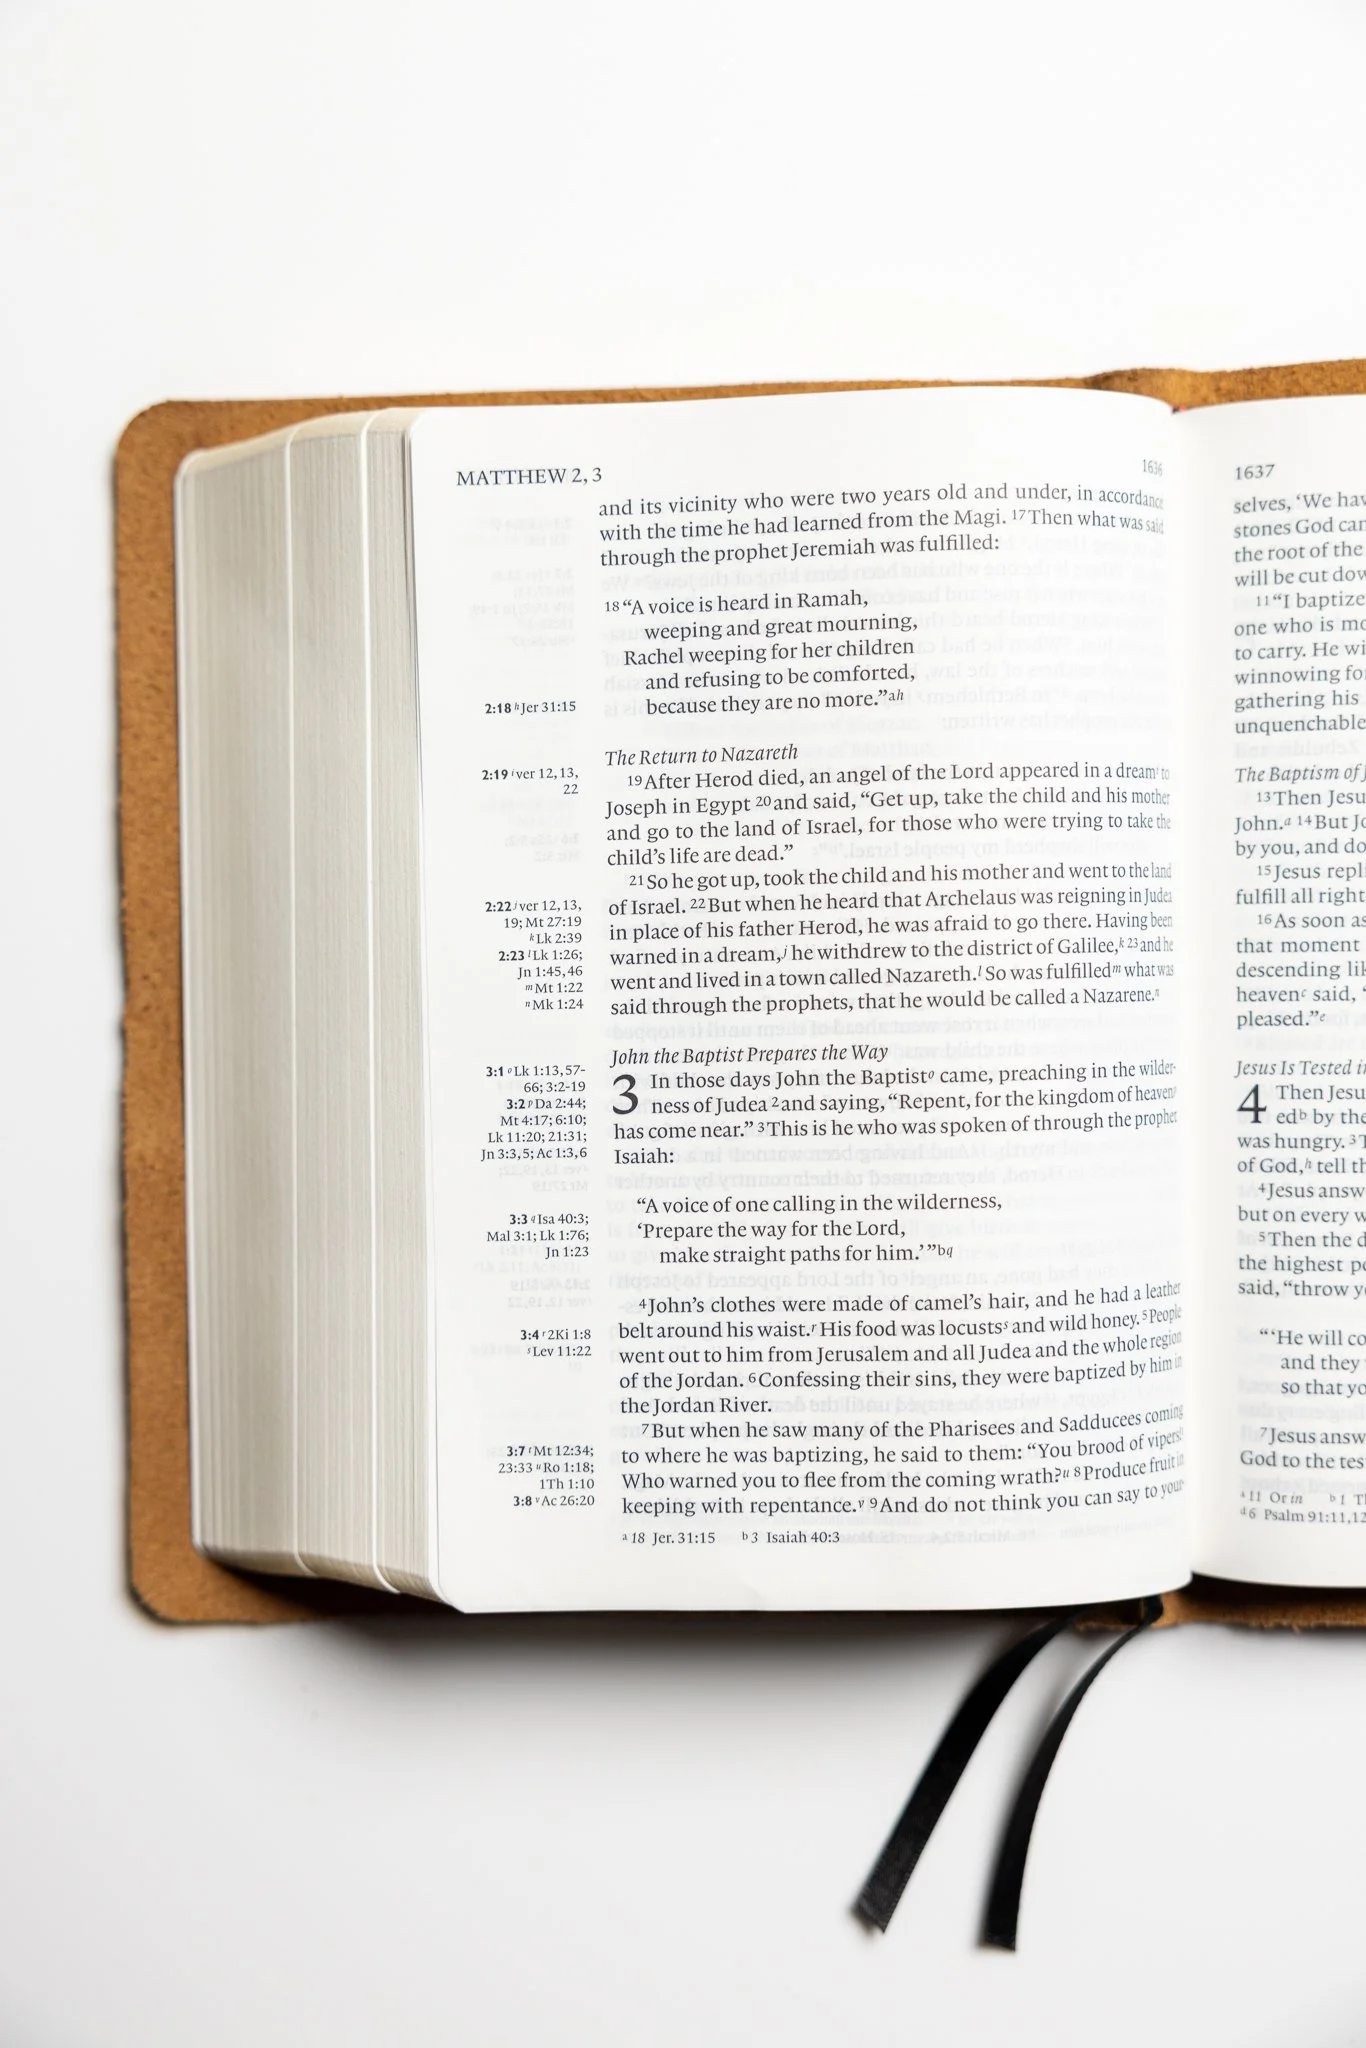 MATTHEW 2, 3
1636
and its vicinity who were two years old and under, in accordance
with the time he had learned from the Magi. 17Then what was said
through the prophet Jeremiah was fulfilled:
18 “A voice is heard in Ramah,
weeping and great mourning,
Rachel weeping for her children
and refusing to be comforted,
2:18 h Jer 31:15
because they are no more.”ah
The Return to Nazareth
2:19 i ver 12, 13,
22
19After Herod died, an angel of the Lord appeared in a dreami to
Joseph in Egypt 20and said, “Get up, take the child and his mother
and go to the land of Israel, for those who were trying to take the
child’s life are dead.”
21So he got up, took the child and his mother and went to the land
2:22 j ver 12, 13,
19; Mt 27:19
k Lk 2:39
2:23 l Lk 1:26;
Jn 1:45, 46
m Mt 1:22
n Mk 1:24
of Israel. 22But when he heard that Archelaus was reigning in Judea
in place of his father Herod, he was afraid to go there. Having been
warned in a dream,j he withdrew to the district of Galilee,k 23and he
went and lived in a town called Nazareth.l So was fulfilledm what was
said through the prophets, that he would be called a Nazarene.n
John the Baptist Prepares the Way
3:1 o Lk 1:13, 57-
66; 3:2-19
3:2 p Da 2:44;
Mt 4:17; 6:10;
Lk 11:20; 21:31;
Jn 3:3, 5; Ac 1:3, 6
3 In those days John the Baptisto came, preaching in the wilder-
ness of Judea 2and saying, “Repent, for the kingdom of heavenp
has come near.” 3This is he who was spoken of through the prophet
Isaiah:
3:3 q Isa 40:3;
Mal 3:1; Lk 1:76;
Jn 1:23
“A voice of one calling in the wilderness,
‘Prepare the way for the Lord,
make straight paths for him.’ ”bq
4John’s clothes were made of camel’s hair, and he had a leather
3:4 r 2Ki 1:8
s Lev 11:22
belt around his waist.r His food was locustss and wild honey. 5People
went out to him from Jerusalem and all Judea and the whole region
of the Jordan. 6Confessing their sins, they were baptized by him in
the Jordan River.
7But when he saw many of the Pharisees and Sadducees coming
3:7 t Mt 12:34;
23:33 u Ro 1:18;
1Th 1:10
3:8 v Ac 26:20
to where he was baptizing, he said to them: “You brood of viperst!
Who warned you to flee from the coming wrath?u 8Produce fruit in
keeping with repentance.v 9And do not think you can say to your-
a 18 Jer. 31:15 b 3 Isaiah 40:3
1637
selves, ‘We hav
stones God can
the root of the
will be cut dow
11“I baptize
one who is mo
to carry. He wi
winnowing fo
gathering his
unquenchable
The Baptism of J
13Then Jesu
John.a 14But Jo
by you, and do
15Jesus repli
fulfill all right
16As soon as
that moment
descending lik
heavenc said, “
pleased.”e
Jesus Is Tested i
4 Then Jesu
edb by the
was hungry. 3T
of God,h tell th
4Jesus answ
but on every w
5Then the d
the highest po
said, “throw yo
“ ‘He will co
and they
so that yo
7Jesus answ
God to the tes
a 11 Or in b 1 Th
d 6 Psalm 91:11,12